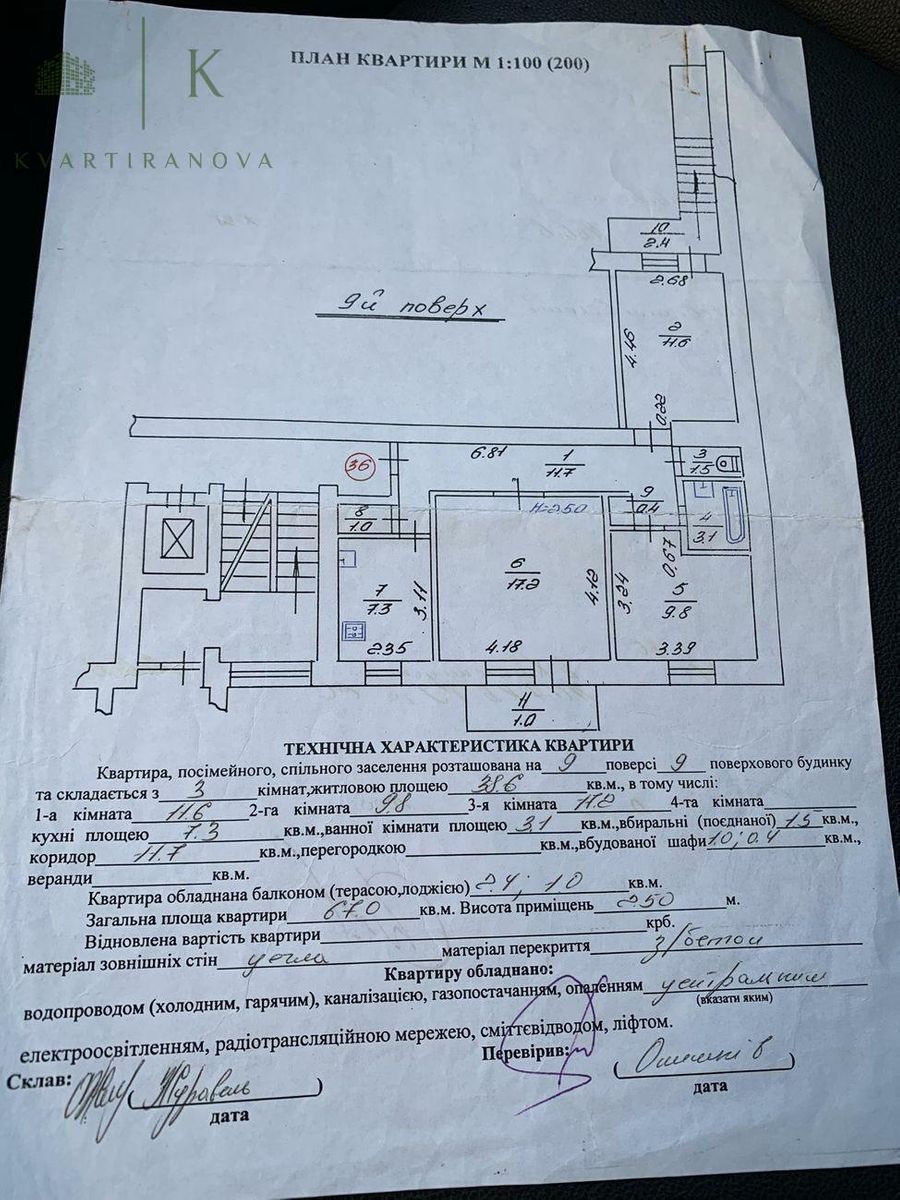 K
KVARTIRANOVA
ПЛАН КВАРТИРИ М 1:100 (200)
10
2.4
2.68
9й поверх
2
11.6
4.46
0.22
6.81
1
11.7
3
1.5
36
H=2.50
9
0.4
4
3.1
8
1.0
6
17.2
4.12
0.67
7
7.3
3.11
3.24
5
9.8
2.35
4.18
3.39
11
1.0
ТЕХНІЧНА ХАРАКТЕРИСТИКА КВАРТИРИ
Квартира, посімейного, спільного заселення розташована на 9 поверсі 9 поверхового будинку
та складається з 3 кімнат,житловою площею 38.6 кв.м., в тому числі:
1-а кімната 11.6 2-га кімната 9.8 3-я кімната 17.2 4-та кімната
кухні площею 7.3 кв.м.,ванної кімнати площею 3.1 кв.м.,вбиральні (поєднаної) 1.5 кв.м.,
коридор 11.7 кв.м.,перегородкою кв.м.,вбудованої шафи 1.0; 0.4 кв.м.,
веранди кв.м.
Квартира обладнана балконом (терасою,лоджією) 2.4; 1.0 кв.м.
Загальна площа квартири 67.0 кв.м. Висота приміщень 2.50 м.
Відновлена вартість квартири крб.
матеріал зовнішніх стін цегла матеріал перекриття з/бетон
Квартиру обладнано:
водопроводом (холодним, гарячим), каналізацією, газопостачанням, опаленням центральним
(вказати яким)
електроосвітленням, радіотрансляційною мережею, сміттєвідводом, ліфтом.
Склав: Журавель
Перевірив:
дата
дата